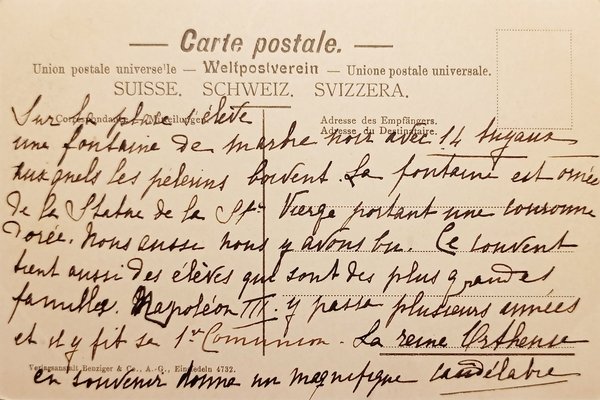 — Carte postale. —
Union postale universelle — Weltpostverein — Unione postale universale.
SUISSE. SCHWEIZ. SVIZZERA.
Sur la place s'élève
Correspondance. Mitteilungen.
Adresse des Empfängers.
Adresse du Destinataire.
une fontaine de marbre noir avec 14 tuyaux
auxquels les pelerins boivent. La fontaine est ornée
de la Statue de la Ste Vierge portant une couronne
dorée. Nous aussi nous y avons bu. Ce couvent
tient aussi des élèves qui sont des plus grandes
familles. Napoléon III. y passa plusieurs années
et il y fit sa 1re Communion. La reine Orthense
Verlagsanstalt Benziger & Co., A.-G., Einsiedeln 4732.
en souvenir donne un magnifique candélabre